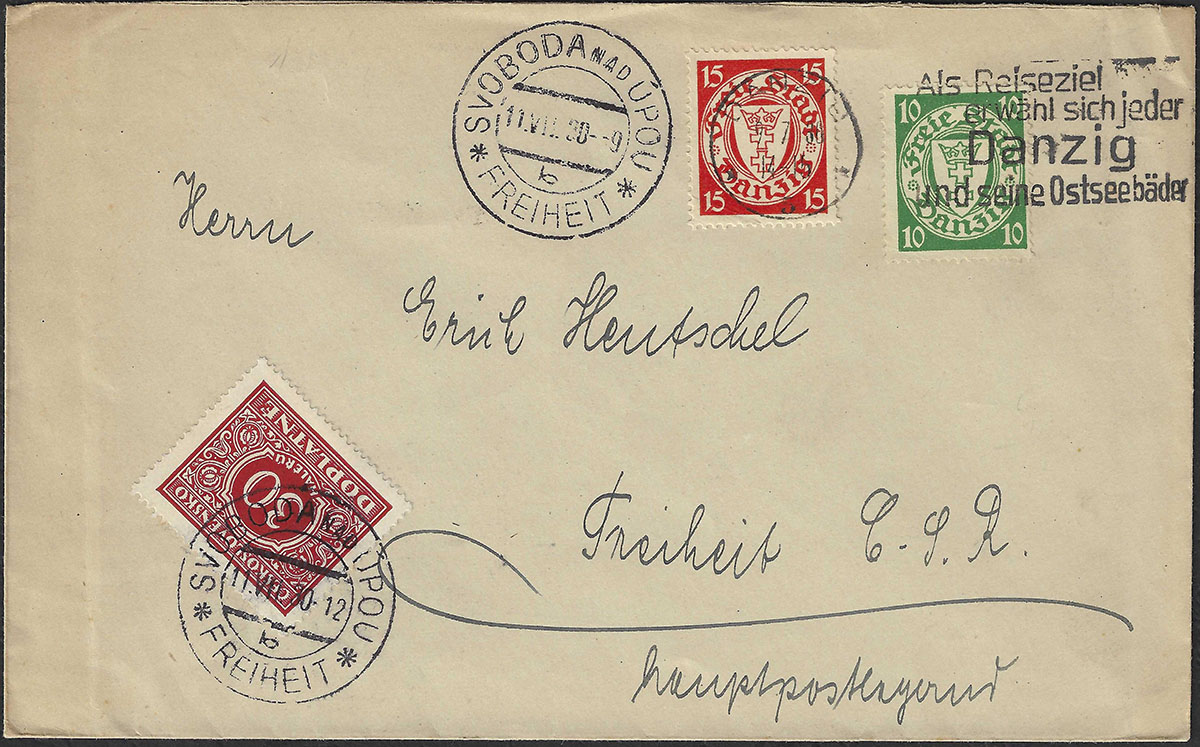 SVOBODA NAD ÚPOU
11.VII.30-9
b
* FREIHEIT *
15 15
Freie Stadt
Danzig
15 15
10 10
Freie Stadt
Danzig
10 10
Als Reiseziel
erwähl sich jeder
Danzig
und seine Ostseebäder
Herrn
Erich Hentschel
Freiheit Č.S.R.
hauptpostlagernd
DOPLATNÉ
HALERU
50
ČESKOSLOVENSKO
SVOBODA NAD ÚPOU
11.VII.30-12
b
* FREIHEIT *